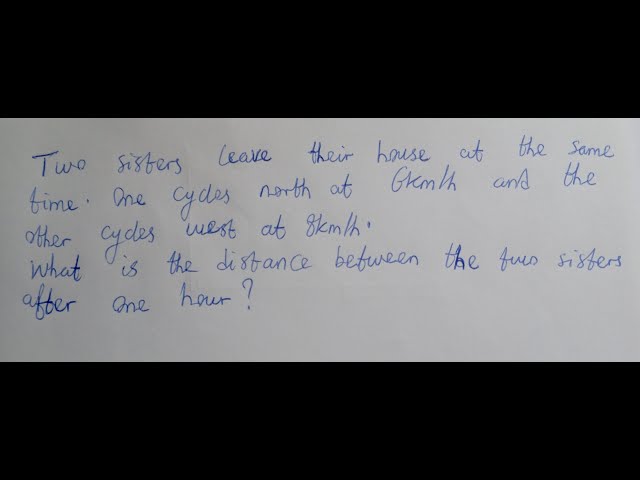 Two sisters leave their house at the same
time. One cycles north at 6km/h and the
other cycles west at 8km/h.
What is the distance between the two sisters
after one hour?